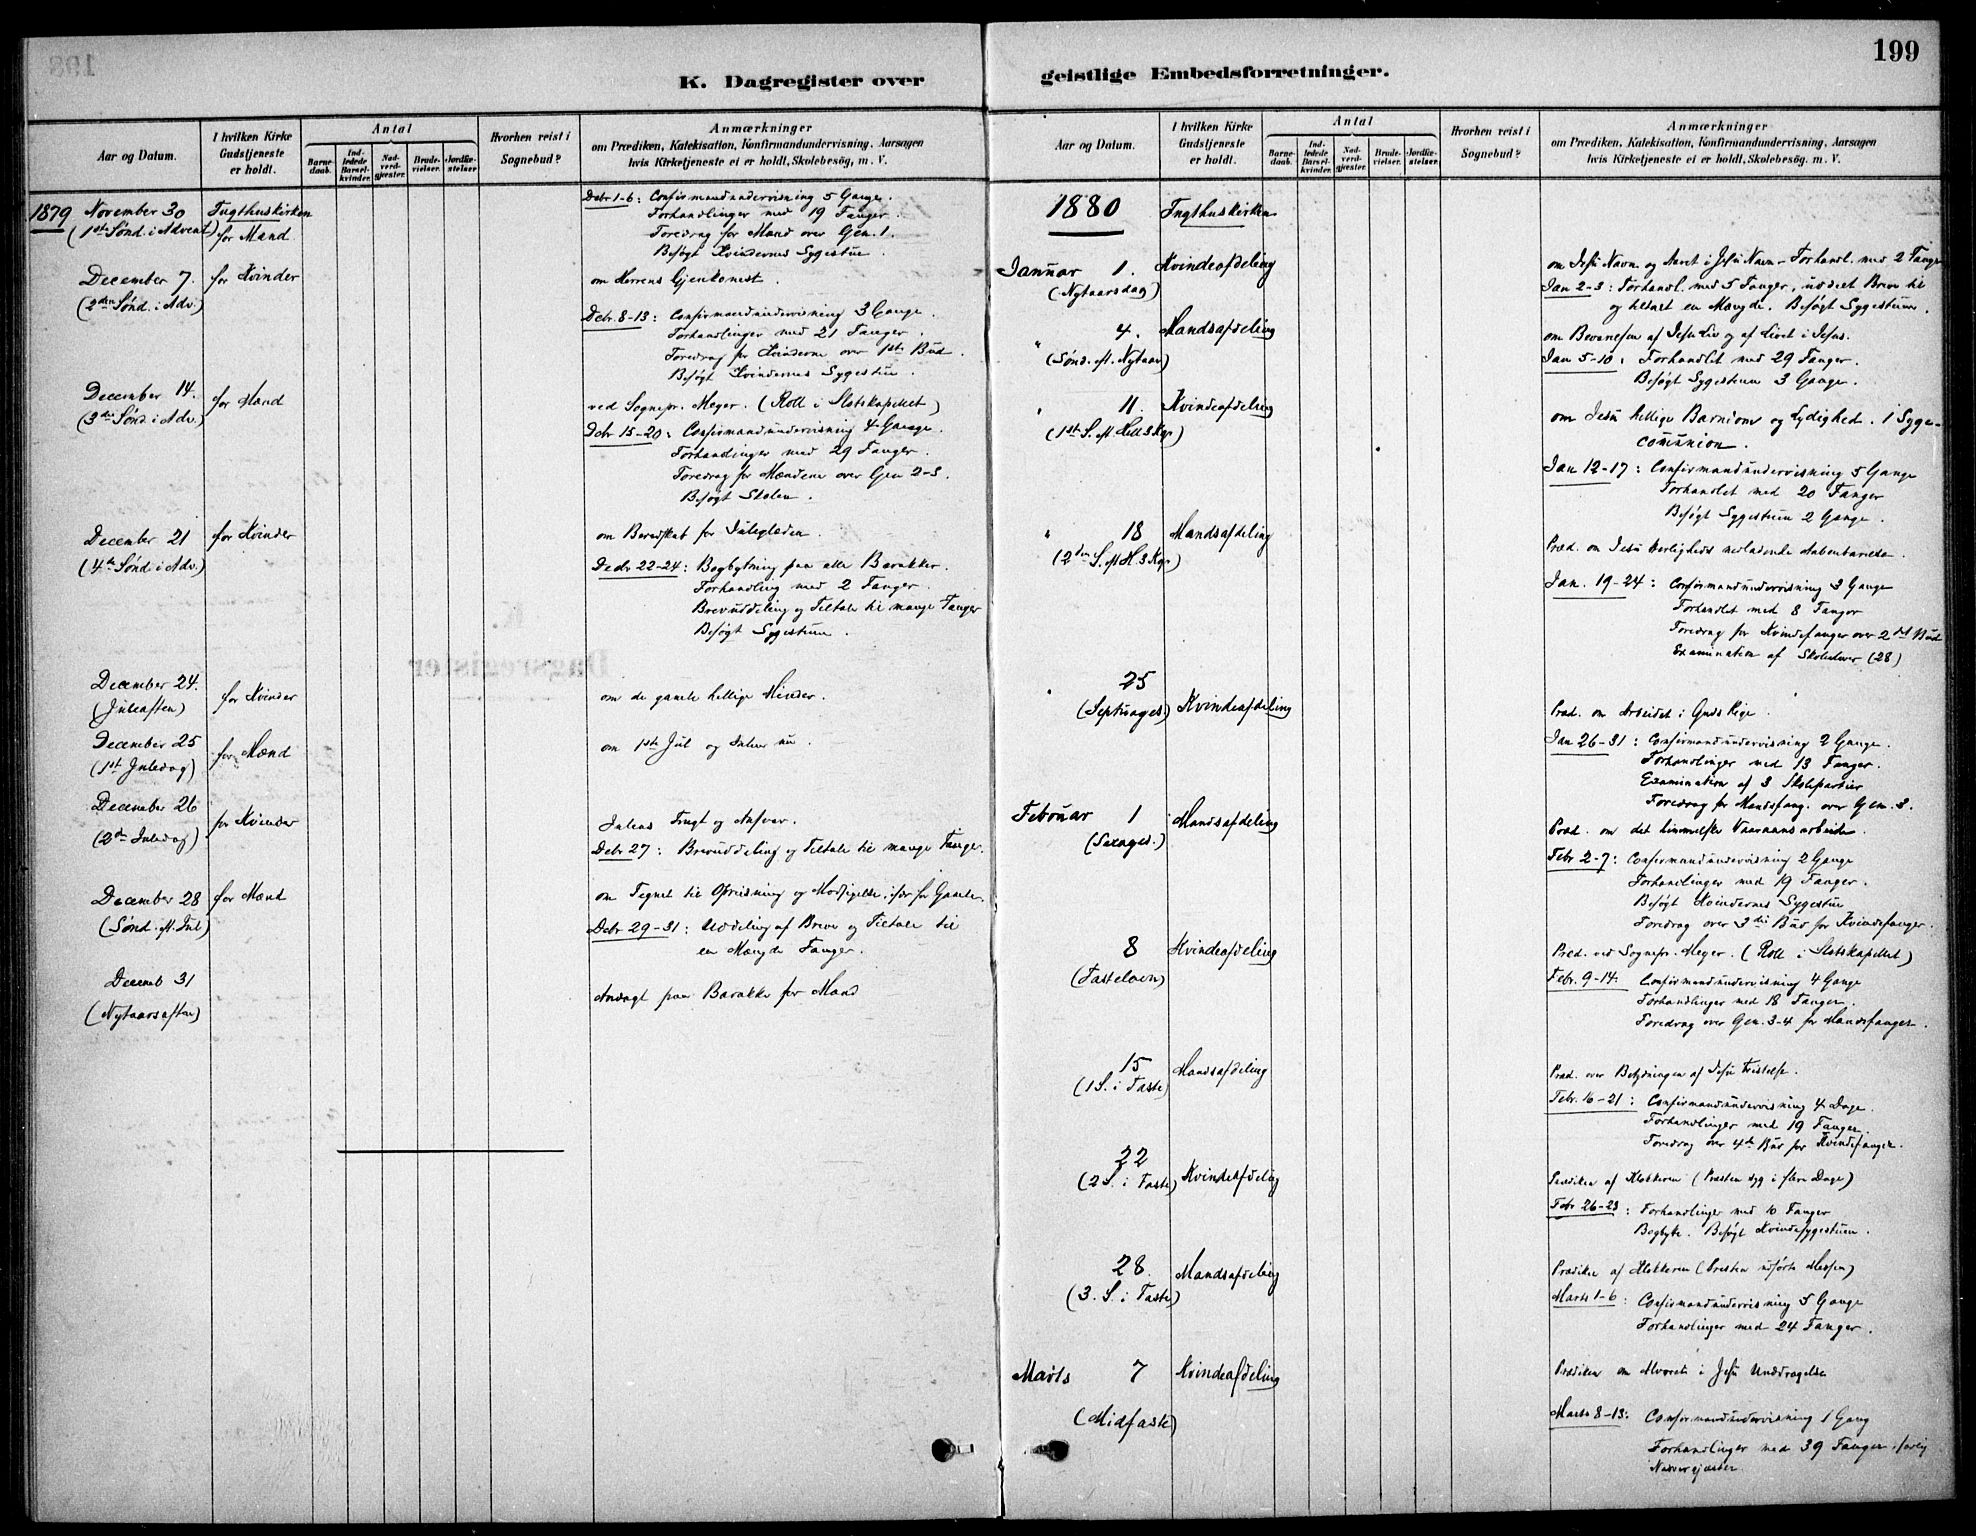 199
K. Dagregister over
Aar og Datum.
I hvilken Kirke Gudstjeneste er holdt.
Antal
Barnedaab.
Indledede Barselkvinder.
Nadverdgjester.
Brudevielser.
Jordfæstelser.
Hvorhen reist i Sognebud?
Anmærkninger
om Prædiken, Katekisation, Konfirmandundervisning, Aarsagen
hvis Kirketjeneste ei er holdt, Skolebesøg, m. V.
1879 November 30 Tugthuskirken
(1ste Sønd. i Advent) for Mænd
Debr 1-6: Confirmandundervisning 5 Gange.
Forhandlinger med 19 Fanger.
Foredrag for Mænd over Gen. 1.
Besøgt Kvindernes Sygestue.
December 7. for Kvinder om Herrens Gjenkomst.
(2den Sønd. i Adv.)
Debr. 8-13: Confirmandundervisning 3 Gange.
Forhandlinger med 21 Fanger.
Foredrag for Kvinderne over 1ste Bud.
Besøgt Kvindernes Sygestue.
December 14. for Mænd ved Sognepr. Meyer. (Roll i Slotskapellet)
(3die Sønd. i Adv.)
Debr 15-20: Confirmandundervisning 4 Gange.
Forhandlinger med 29 Fanger.
Foredrag for Mændene over Gen 2-3.
Besøgt Skolen.
December 21 for Kvinder om Beredskab for Juleglæden.
(4de Sønd. i Adv.)
Decbr 22-24: Bogbytning paa alle Barakker.
Forhandling med 2 Fanger.
Brevuddeling og Tiltale til mange Fanger
Besøgt Sygestuen.
December 24. for Kvinder om de gamle hellige Minder.
(Juleaften)
December 25 for Mænd om 1ste Jul og Julen nu.
(1ste Juledag)
December 26 for Kvinder Julens Frugt og Ansvar.
(2den Juledag)
Debr 27: Brevuddeling og Tiltale til mange Fanger.
December 28 for Mænd om Tegnet til Opreisning og Modsigelse, især for Gamle.
(Sønd. M. Jul)
Debr 29-31: Uddeling af Breve og Tiltale til
en Mængde Fanger.
Decemb 31 Andagt paa Barakke for Mænd
(Nytaarsaften)
geistlige Embedsforretninger.
Aar og Datum.
I hvilken Kirke Gudstjeneste er holdt.
Antal
Barnedaab.
Indledede Barselkvinder.
Nadverdgjester.
Brudevielser.
Jordfæstelser.
Hvorhen reist i Sognebud?
Anmærkninger
om Prædiken, Katekisation, Konfirmandundervisning, Aarsagen
hvis Kirketjeneste ei er holdt, Skolebesøg, m. V.
1880 Tugthuskirken
Januar 1. Kvindeafdeling om Jesu Navn og Aaret i Jesu Navn. Forhandl. med 2 Fanger
(Nytaarsdag)
Jan 2-3: Forhandl. med 5 Fanger, uddelt Breve til
og hilset en Mængde. Besøgt Sygestuen.
" 4. Mandsafdeling om Bevarelsen af Jesu Liv og af Livet i Jesus.
(Sønd. M. Nytaar)
Jan 5-10: Forhandlet med 29 Fanger.
Besøgt Sygestuen 3 Gange.
" 11. Kvindeafdeling om Jesu hellige Barndom og Lydighed. 1 Syge-
communion.
(1ste S. M Hell 3 Kgr)
Jan 12-17: Confirmandundervisning 5 Gange
Forhandlet med 20 Fanger
Besøgt Sygestuen 2 Gange.
" 18 Mandsafdeling Præd. om Jesu Herligheds nedladende Aabenbarelse.
(2den S. M H. 3 Kgr)
Jan. 19-24: Confirmandundervisning 3 Gange
Forhandlet med 8 Fanger
Foredrag for Kvindefanger over 2det Bud
Examination af Skoleelever (28)
" 25 Kvindeafdeling Præd. om Arbeidet i Guds Rige.
(Septuages.)
Jan 26-31: Confirmandundervisning 2 Gange.
Forhandlinger med 13 Fanger.
Examination af 3 Skolepartier
Foredrag for Mandsfang. over Gen. 3.
Februar 1 Mandsafdeling Præd. om det himmelske Vaaraansarbeide.
(Sexages.)
Febr 2-7: Confirmandundervisning 2 Gange
Forhandlinger med 19 Fanger.
Besøgt Kvindernes Sygestue
Foredrag over 3die Bud for Kvindefanger.
8 Kvindeafdeling Præd. ved Sognepr. Meyer. (Roll i Slotskapellet)
(Fastelavn)
Febr. 9-14. Confirmandundervisning 4 Gange
Forhandlinger med 18 Fanger.
Foredrag over Gen. 3-4 for Mandsfanger.
15 Mandsafdeling Præd. over Betydningen af Jesu Fristelse.
(1 S. i Faste)
Febr. 16-21: Confirmandundervisning 4 Dage.
Forhandlinger med 19 Fanger.
Foredrag over 4de Bud for Kvindefanger.
22 Kvindeafdeling Prædiken af Klokkeren (Præsten syg i flere Dage)
(2 S. i Faste)
Febr 26-28: Forhandlinger med 10 Fanger
Bogbytte. Besøgt Kvindesygestuen.
28. Mandsafdeling Prædiken af Klokkeren (Præsten udførte Messen)
(3. S. i Faste)
Marts 1-6: Confirmandundervisning 5 Gange
Forhandlinger med 24 Fanger.
Marts 7 Kvindeafdeling Prædiken om Alvoret i Jesu Unddragelse
(Midfaste)
Marts 8-13: Confirmandundervisning 1 Gang
Forhandlinger med 39 Fanger,
Nadvergjæster